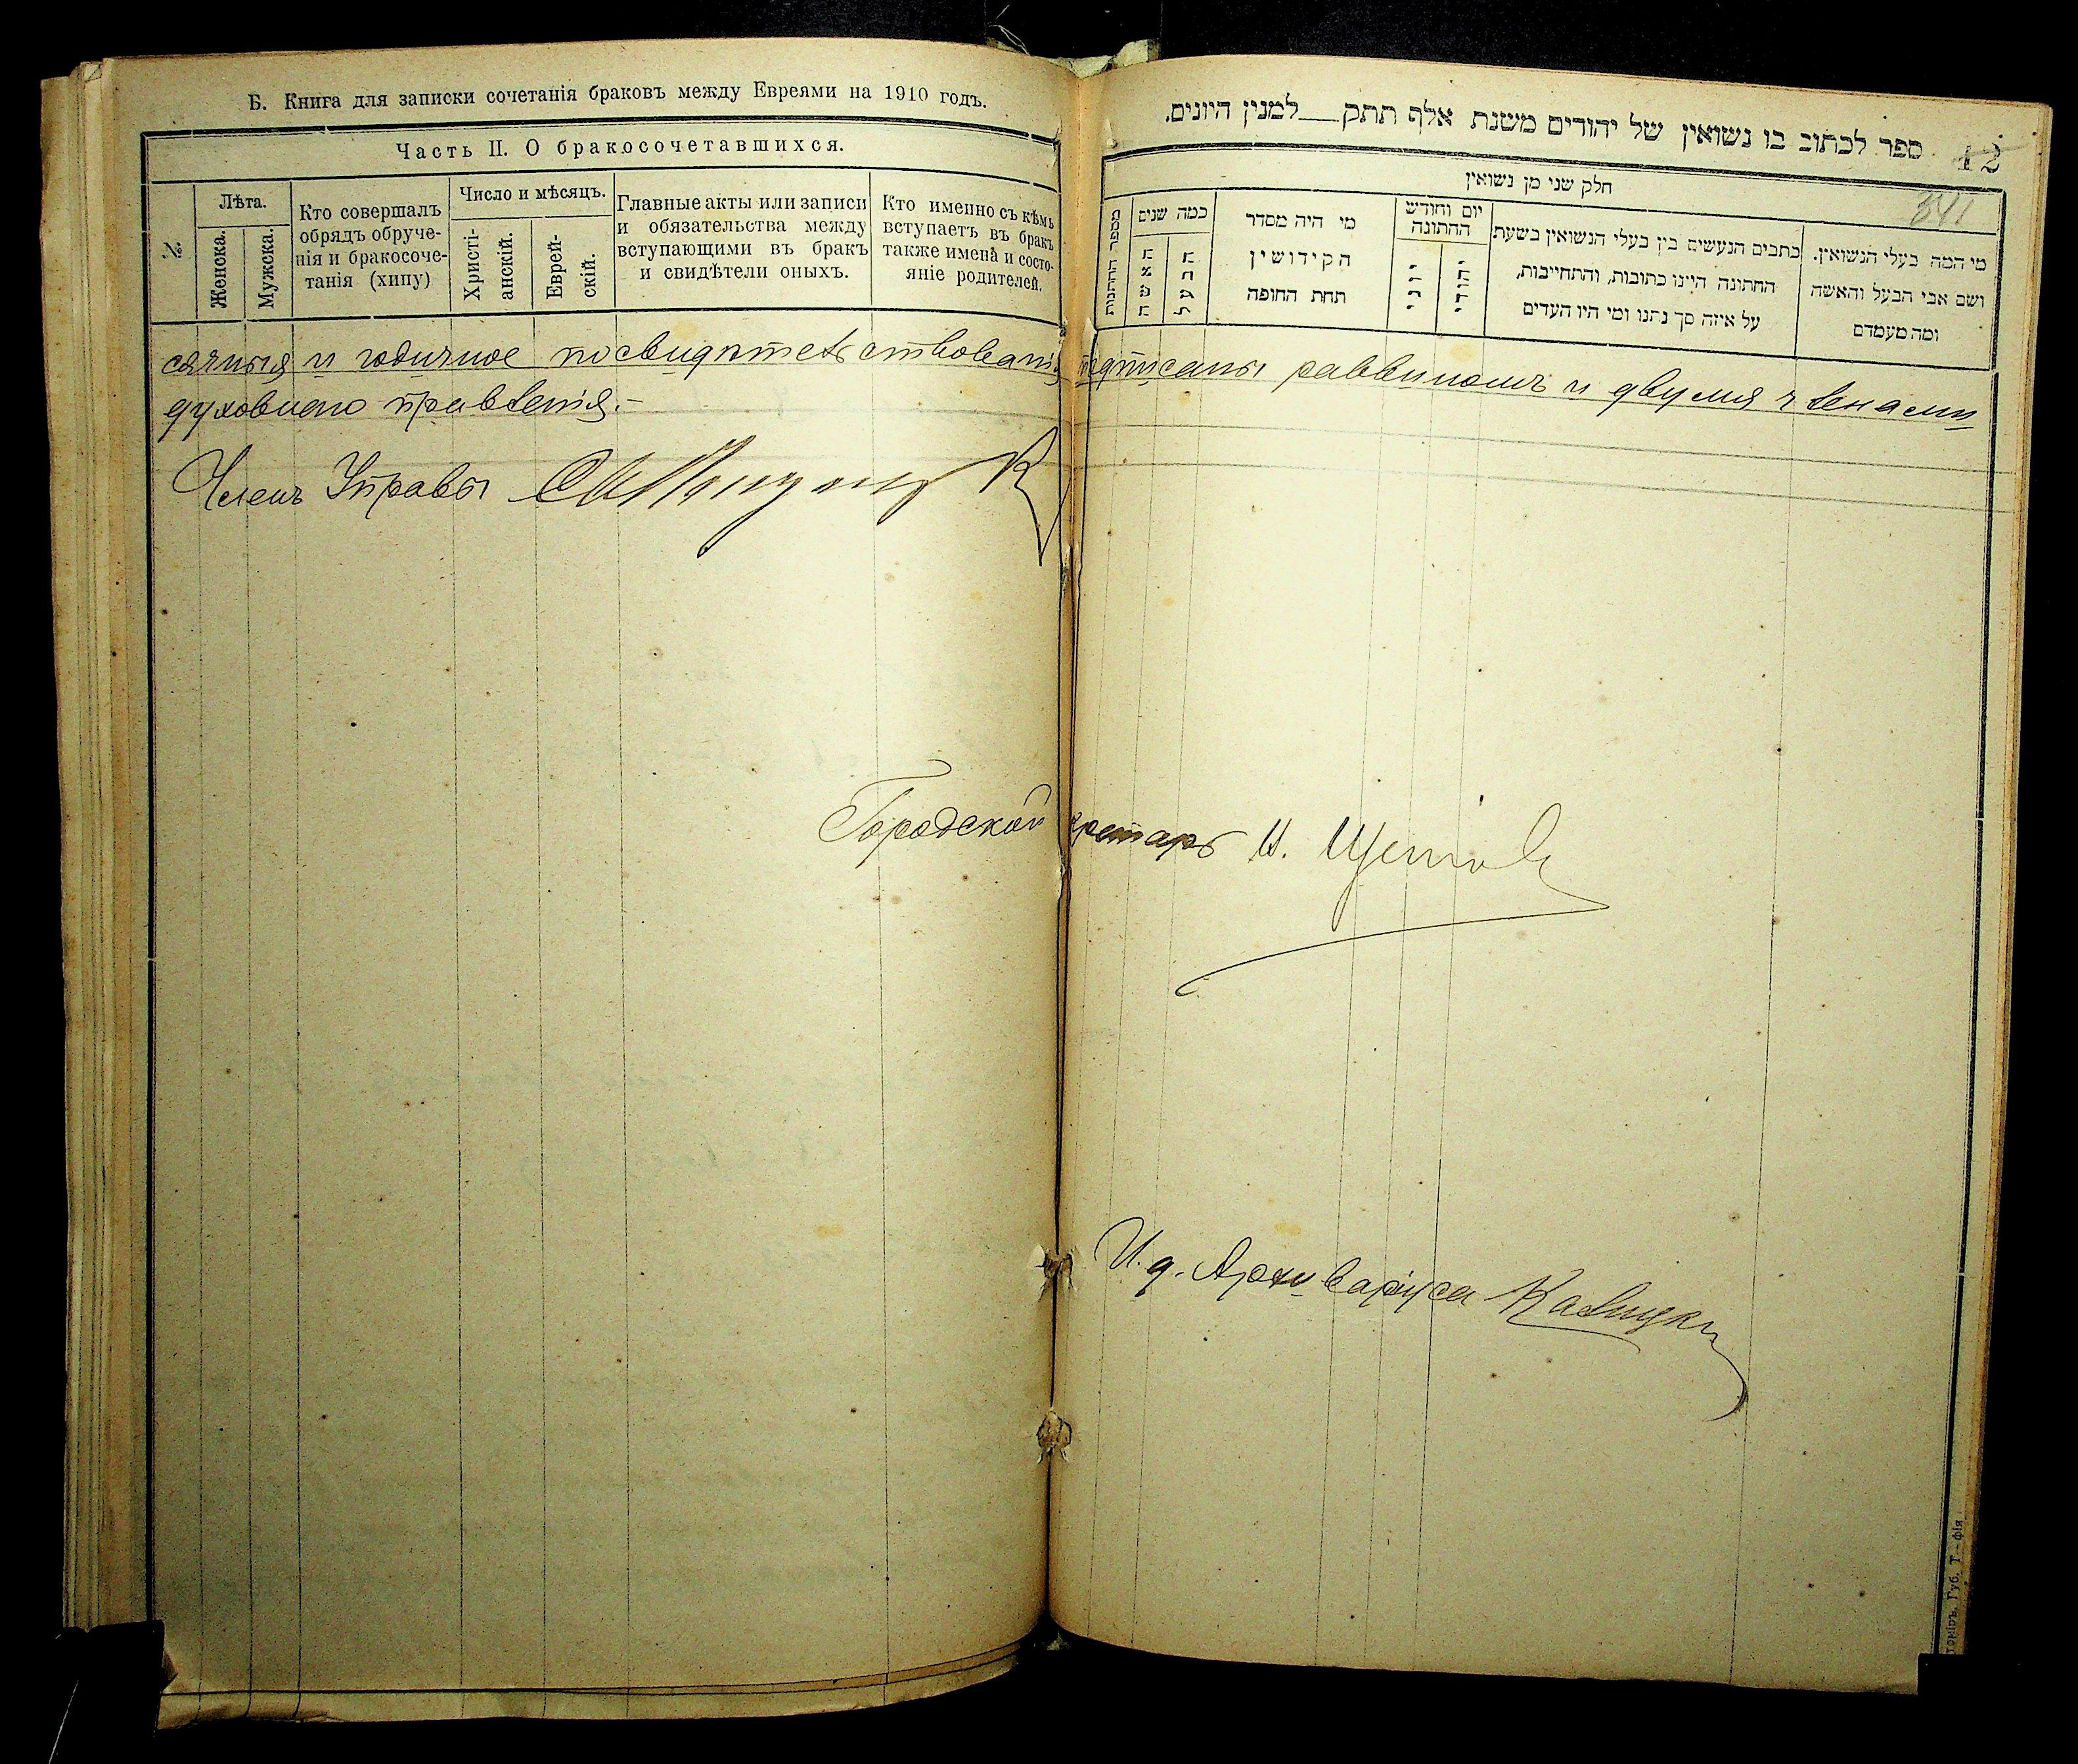 Б. Книга для записки сочетанія браковъ между Евреями на 1910 годъ.
Часть II. О бракосочетавшихся.
№.
Лѣта.
Женска.
Мужска.
Кто совершалъ
обрядъ обруче-
нія и бракосоче-
танія (хипу)
Число и мѣсяцъ.
Христі-
анскій.
Еврей-
скій.
Главные акты или записи
и обязательства между
вступающими въ бракъ
и свидѣтели оныхъ.
Кто именно съ кѣмъ
вступаетъ въ бракъ
также имена и состо-
яніе родителей.
ספר לכתוב בו נשואין של יהודים משנת אלף תתק__למנין היונים.
42
841
חלק שני מן נשואין
מספר החתונות
כמה שנים
האשה
הבעל
מי היה מסדר
הקידושין
תחת החופה
יום וחודש
החתונה
יוני
יהודי
כתבים הנעשים בין בעלי הנשואין בשעת
החתונה היינו כתובות, והתחייבות,
על איזה סך נתנו ומי היו העדים
מי המה בעלי הנשואין.
ושם אבי הבעל והאשה
ומה מעמדם
сячныя и годичное посвидѣтельствованія подписаны раввиномъ и двумя членами
духовнаго правленія.-
Членъ Управы
Городской кретарь И.
И. д. Архиваріуса Калицки
Губ. Т-фія